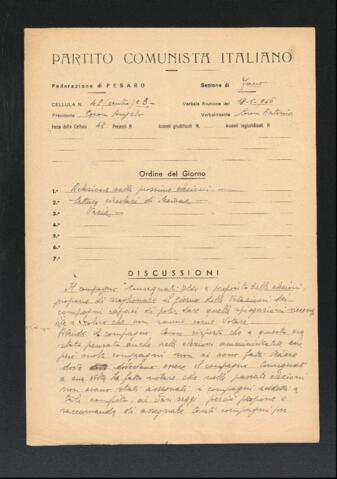 PARTITO COMUNISTA ITALIANO
Federazione di PESARO Sezione di Fano
CELLULA N. 48 Verbale Riunione del
Presidente Angelo Verbalizzante Antonio
Forza della Cellula 48 Presenti N. Assenti giustificati N. Assenti ingiustificati N.
Ordine del Giorno
1.° Relazione sulle prossime elezioni
2.° Lettura circolari di
3.° Varie
4.°
5.°
6.°
7.°
DISCUSSIONI
Il compagno a proposito delle elezioni,
propone di il giorno delle votazioni dei
compagni capaci di poter dar quelle spiegazioni necessa
rie a coloro che non sanno come votare.
compagno risposto che a questo era
stato pensato anche nelle elezioni amministrative
però molti compagni non si sono fatti vedere
dove dovevano essere il compagno
a sua volta ha fatto notare che nelle passate elezioni
non erano stati assegnati i compagni
tale compito, ai vari seggi perciò propone e
raccomanda di assegnare tanti compagni per